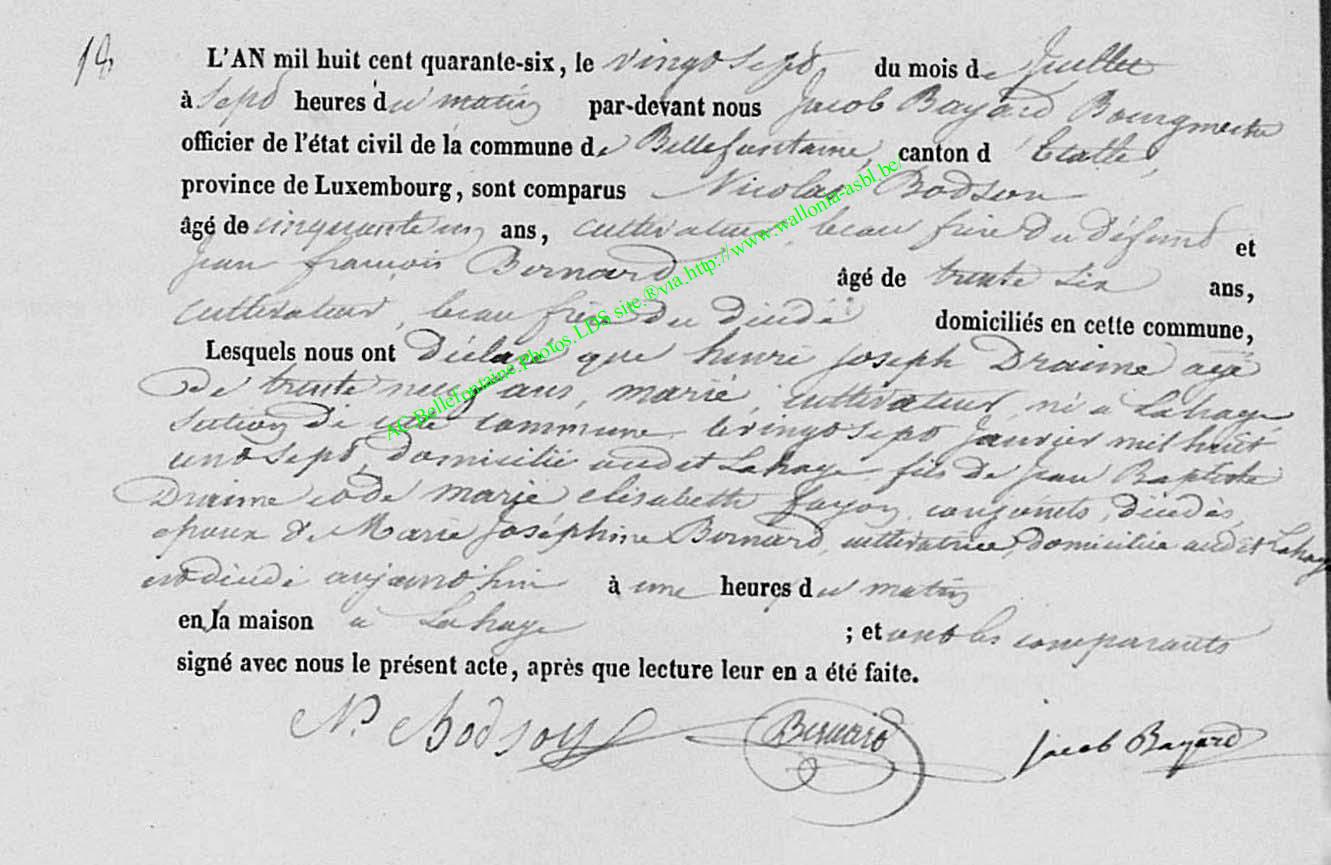 18
L'AN mil huit cent quarante-six, le vingt sept du mois de Juillet
à sept heures du matin par-devant nous Jacob Bayard Bourgmestre
officier de l'état civil de la commune de Bellefontaine, canton d' Etalle,
province de Luxembourg, sont comparus Nicolas Bodson
âgé de cinquante un ans, cultivateur, beau frère du défunt et
Jean françois Bernard âgé de trente six ans,
cultivateur, beau frère du décédé domiciliés en cette commune,
Lesquels nous ont déclaré que henri Joseph Draime agé
de trente neuf ans, marié, cultivateur, né a Lahage
section de cette commune le vingt sept Janvier mil huit
cent sept, domicilié audit Lahage fils de Jean Baptiste
Draime et de marie elisabeth conjoints, décédés,
epoux de Marie Joséphine Bernard, cultivatrice, domiciliée audit Lahage
est décédé aujourd'hui à une heures du matin
en la maison a Lahage ; et ont les comparants
signé avec nous le présent acte, après que lecture leur en a été faite.
N. Bodson Bernard Jacob Bayard
AC.Bellefontaine.Photos.LDS site.®via.http://www.wallonia-asbl.be/